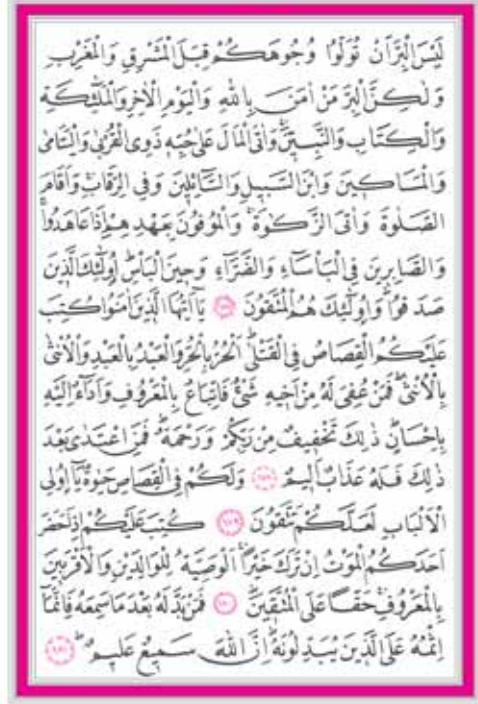 لَيْسَ الْبِرَّ اَنْ تُوَلُّوا وُجُوهَكُمْ قِبَلَ الْمَشْرِقِ وَالْمَغْرِبِ
وَلٰكِنَّ الْبِرَّ مَنْ اٰمَنَ بِاللّٰهِ وَالْيَوْمِ الْاٰخِرِ وَالْمَلٰٓئِكَةِ
وَالْكِتَابِ وَالنَّبِيّٖنَۚ وَاٰتَى الْمَالَ عَلٰى حُبِّهٖ ذَوِى الْقُرْبٰى وَالْيَتَامٰى
وَالْمَسَاكٖينَ وَابْنَ السَّبٖيلِ وَالسَّٓائِلٖينَ وَفِى الرِّقَابِۚ وَاَقَامَ
الصَّلٰوةَ وَاٰتَى الزَّكٰوةَۚ وَالْمُوفُونَ بِعَهْدِهِمْ اِذَا عَاهَدُواۚ
وَالصَّابِرٖينَ فِى الْبَأْسَٓاءِ وَالضَّرَّٓاءِ وَحٖينَ الْبَأْسِۜ اُولٰٓئِكَ الَّذٖينَ
صَدَقُواۜ وَاُولٰٓئِكَ هُمُ الْمُتَّقُونَ ﴿١٧٧﴾ يَٓا اَيُّهَا الَّذٖينَ اٰمَنُوا كُتِبَ
عَلَيْكُمُ الْقِصَاصُ فِى الْقَتْلٰىۜ اَلْحُرُّ بِالْحُرِّ وَالْعَبْدُ بِالْعَبْدِ وَالْاُنْثٰى
بِالْاُنْثٰىۜ فَمَنْ عُفِىَ لَهُ مِنْ اَخٖيهِ شَىْءٌ فَاتِّبَاعٌ بِالْمَعْرُوفِ وَاَدَٓاءٌ اِلَيْهِ
بِاِحْسَانٍۜ ذٰلِكَ تَخْفٖيفٌ مِنْ رَبِّكُمْ وَرَحْمَةٌۜ فَمَنِ اعْتَدٰى بَعْدَ
ذٰلِكَ فَلَهُ عَذَابٌ اَلٖيمٌ ﴿١٧٨﴾ وَلَكُمْ فِى الْقِصَاصِ حَيٰوةٌ يَٓا اُولِى
الْاَلْبَابِ لَعَلَّكُمْ تَتَّقُونَ ﴿١٧٩﴾ كُتِبَ عَلَيْكُمْ اِذَا حَضَرَ
اَحَدَكُمُ الْمَوْتُ اِنْ تَرَكَ خَيْرًاۚ اَلْوَصِيَّةُ لِلْوَالِدَيْنِ وَالْاَقْرَبٖينَ
بِالْمَعْرُوفِۚ حَقًّا عَلَى الْمُتَّقٖينَۜ ﴿١٨٠﴾ فَمَنْ بَدَّلَهُ بَعْدَ مَا سَمِعَهُ فَاِنَّمَٓا
اِثْمُهُ عَلَى الَّذٖينَ يُبَدِّلُونَهُۜ اِنَّ اللّٰهَ سَمٖيعٌ عَلٖيمٌۜ ﴿١٨١﴾